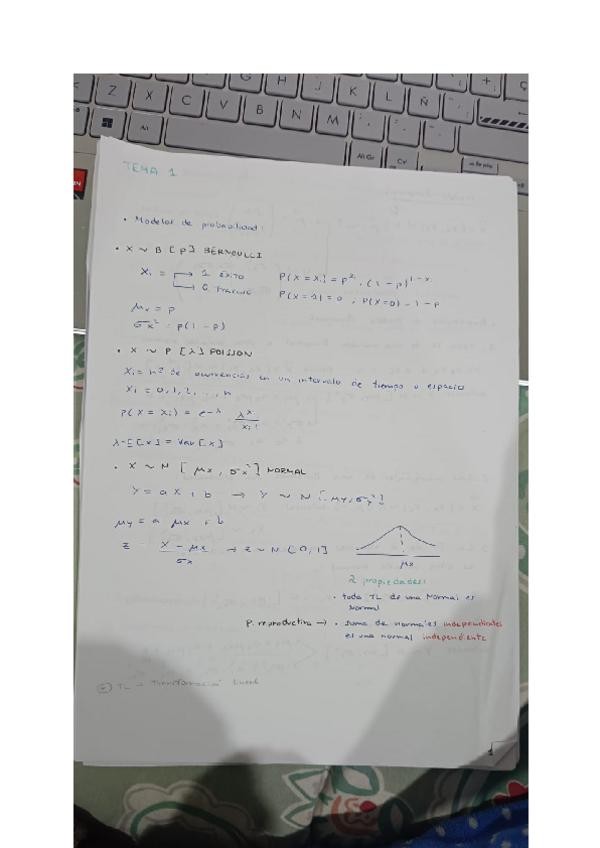 TEMA 1
• Modelos de probabilidad:
• X ~ B [p] BERNOULLI
Xi = → 1 ÉXITO
→ 0 FRACASO
P(X = xi) = p^x · (1 - p)^1-x
P(X = 1) = p ; P(X=0) = 1 - p
μx = p
σx² = p(1 - p)
• X ~ P [λ] POISSON
Xi = nº de ocurrencias en un intervalo de tiempo o espacio
Xi = 0, 1, 2, ..., n
P(X = xi) = e^-λ λ^x / xi!
λ = E[x] = Var [x]
• X ~ N [μx, σx²] NORMAL
Y = a X + b → Y ~ N [μy, σy²]
μy = a μx + b
Z = X - μx / σx → Z ~ N [0, 1]
μx
2 propiedades:
• toda TL de una Normal es
Normal
P. reproductiva → • suma de normales independientes
es una normal independiente
TL → Transformación lineal
1
Z X C V B N M
G H J K L Ñ
Alt
Alt Gr